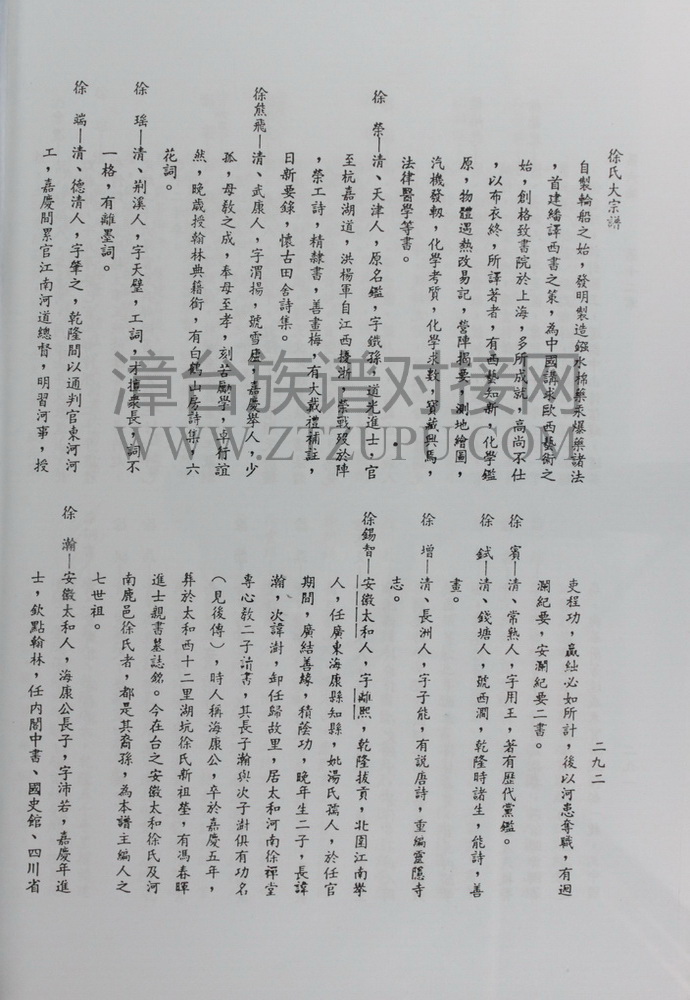 徐氏大宗譜
自製輪船之始，發明製造鏹水棉藥汞爆藥諸法
，首建繙譯西書之策，為中國講求歐西藝術之
始，創格致書院於上海，多所成就，高尚不仕
，以布衣終，所譯著者，有西藝知新，化學鑑
原，物體遇熱改易記，營陣揭要，測地繪圖，
汽機發軔，化學考質，化學求數，寶藏興馬，
法律醫學等書。
徐　榮—清、天津人，原名鑑，字鐵孫，道光進士，官
至杭嘉湖道，洪楊軍自江西擾浙，榮戰歿於陣
，榮工詩，精隸書，善畫梅，有大戴禮補註，
日新要錄，懷古田舍詩集。
徐熊飛—清、武康人，字渭揚，號雪廬，嘉慶舉人，少
孤，母教之成，奉母至孝，刻苦勵學，卓行誼
然，晚歲授翰林典籍銜，有白鶴山房詩集，六
花詞。
徐　瑤—清、荆溪人，字天璧，工詞，才擅衆長，詞不
一格，有離墨詞。
徐　端—清、德清人，字肇之，乾隆間以通判官東河河
工，嘉慶間累官江南河道總督，明習河事，授
吏程功，贏絀必如所計，後以河患奪職，有迴
瀾紀要，安瀾紀要二書。
徐　賓—清、常熟人，字用王，著有歷代黨鑑。
徐　鉽—清、錢塘人，號西澗，乾隆時諸生，能詩，善
畫。
徐　增—清、長洲人，字子能，有說唐詩，重編靈隱寺
志。
徐錫智—安徽太和人，字離熙，乾隆拔貢，北闈江南舉
人，任廣東海康縣知縣，妣湯氏孺人，於任官
期間，廣結善緣，積陰功，晚年生二子，長諱
瀚，次諱澍，卸任歸故里，居太和河南徐禪堂
專心教二子讀書，其長子瀚與次子澍俱有功名
（見後傳），時人稱海康公，卒於嘉慶五年，
葬於太和西十二里湖坑徐氏新祖塋，有馮春暉
進士親書墓誌銘。今在台之安徽太和徐氏及河
南鹿邑徐氏者，都是其裔孫，為本譜主編人之
七世祖。
徐　瀚—安徽太和人，海康公長子，字沛若，嘉慶年進
士，欽點翰林，任内閣中書、國史館、四川省
二九二
漳台族谱对接网
WWW.ZTZUPU.COM